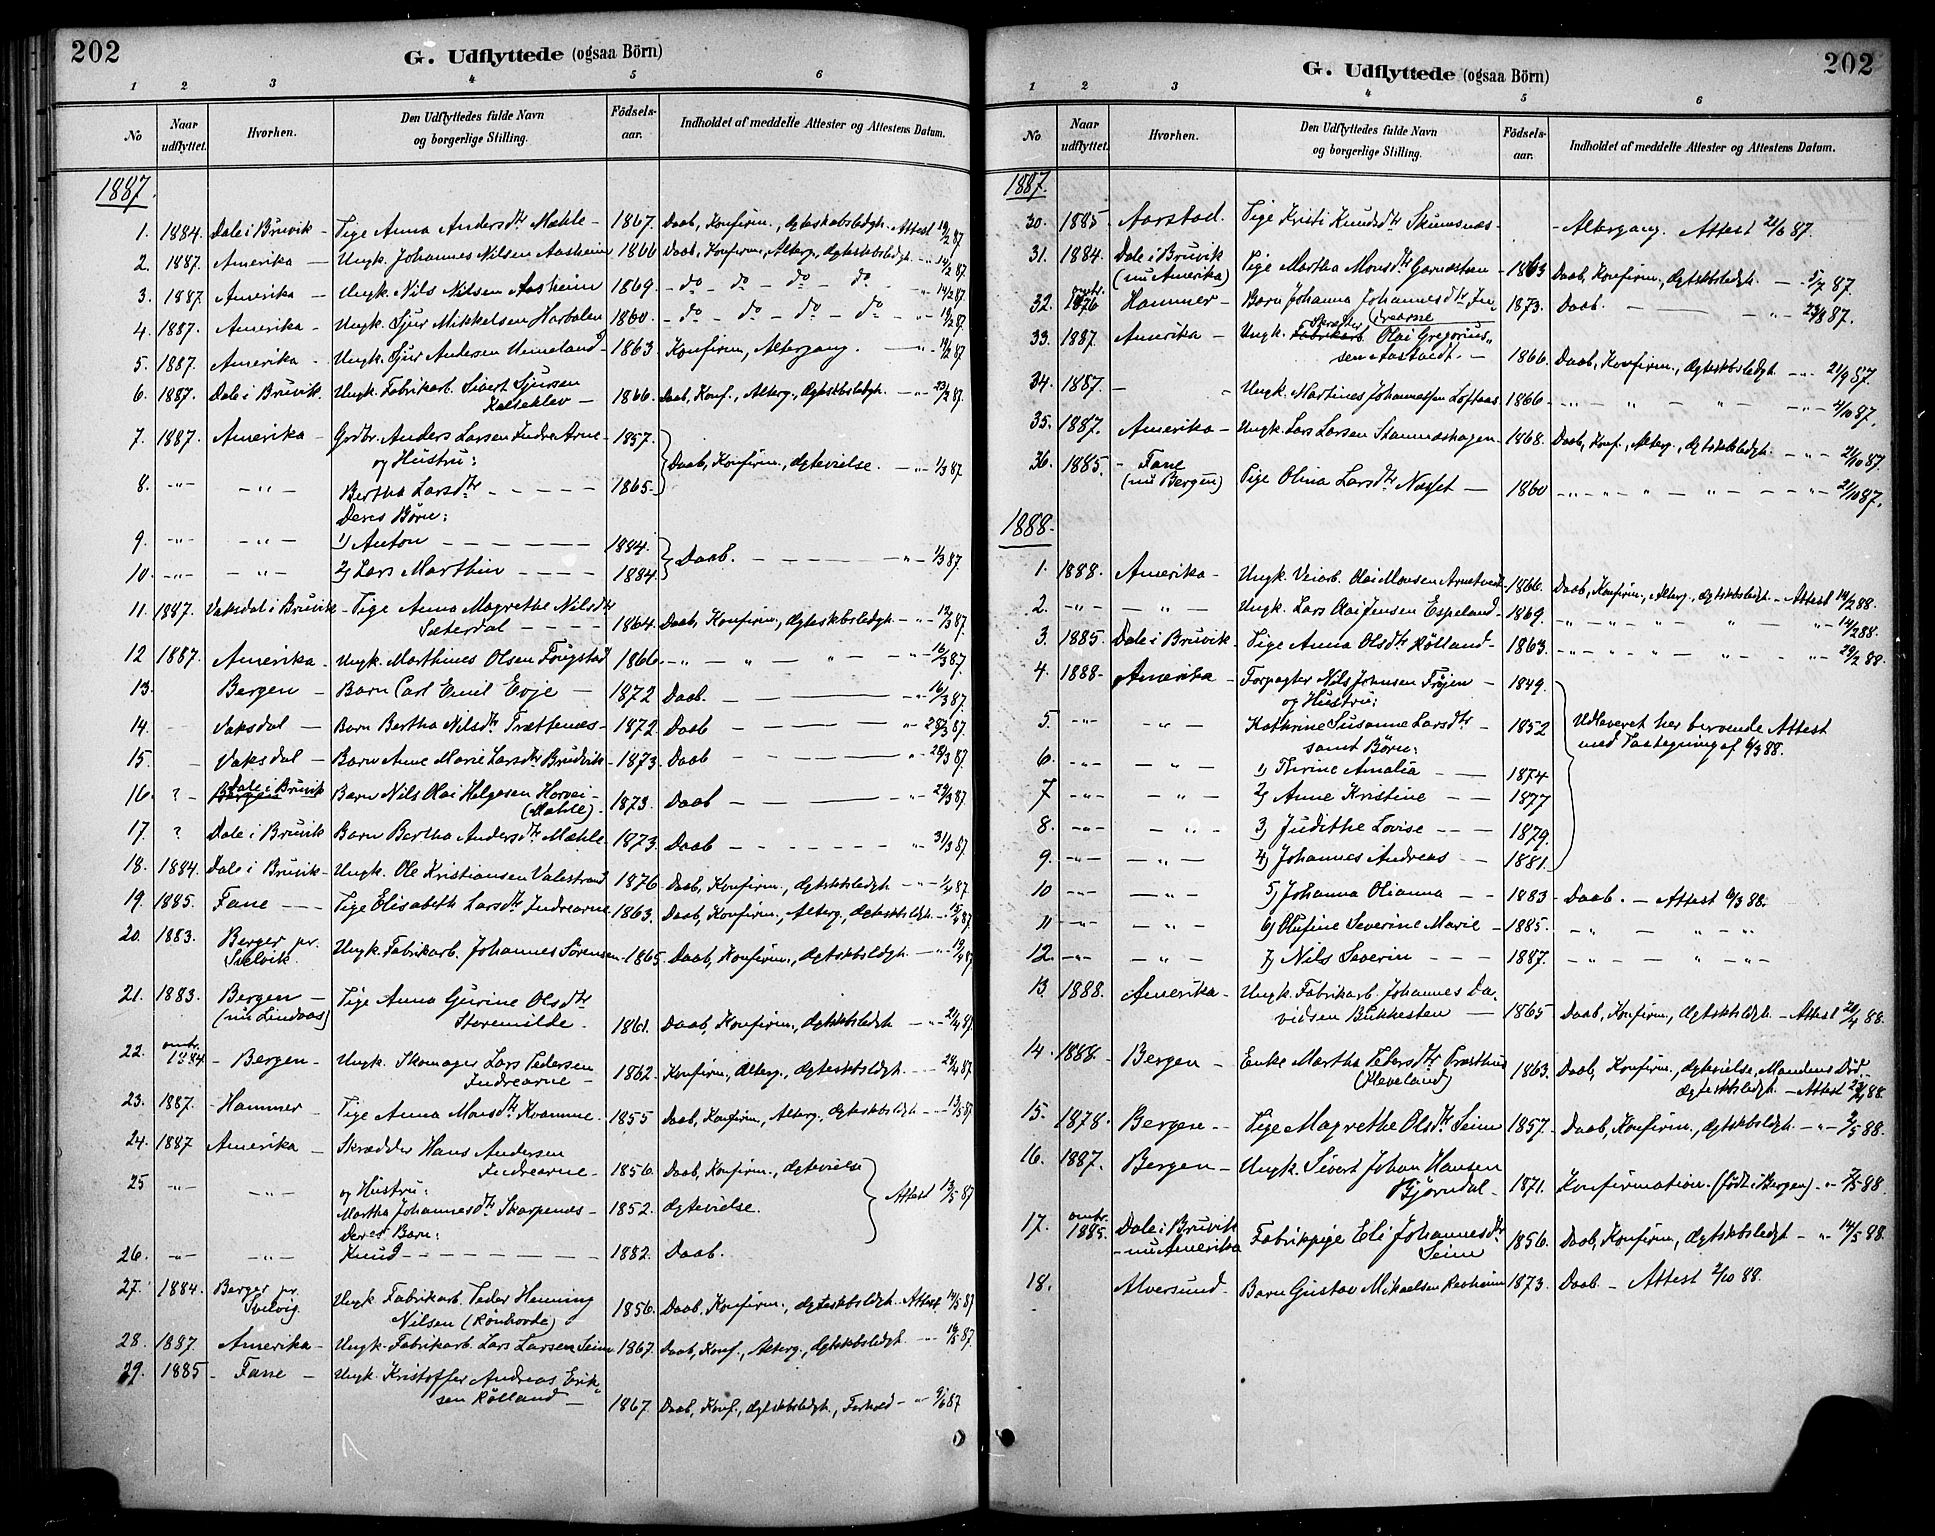 202
G. Udflyttede (ogsaa Börn)
1 2 3 4 5 6
No Naar udflyttet. Hvorhen. Den Udflyttedes fulde Navn og borgerlige Stilling. Födsels-aar. Indholdet af meddelte Attester og Attestens Datum.
1887.
1. 1884. Dale i Bruvik - Pige Anna Andersdtr Mæhle - 1867. Daab, Konfirm., Ægteskabsledgh. Attest 10/2 87.
2. 1887. Amerika - Ungk. Johannes Nilsen Aasheim 1866 Daab, Konfirm, Alterg., Ægteskbsledgh. - " 14/2 87.
3. 1887. Amerika - Ungk. Nils Nilsen Aasheim 1869. - do - do - do - do - " 14/2 87.
4. 1887. Amerika - Ungk. Sjur Mikkelsen Haröolen 1860. - do - do - do - do - " 19/2 87.
5. 1887. Amerika - Ungk. Sjur Andersen Unneland 1863 Konfirm, Altergang. - " 19/2 87.
6. 1887. Dale i Bruvik. Ungk. Fabrikarb. Sivert Sjursen
Kalseklev - 1866. Daab, Konf., Alterg., Ægteskbsledgh. - " - 23/2 87.
7. 1887. Amerika - Grdbr. Anders Larsen Indre Arne - 1857.
og Hustru: Daab, Konfirm., Ægtevielse. - " - 1/3 87
8. -"- - " - Bertha Larsdtr - - - - - 1865.
Deres Börn:
9. -"- - " - 1) Anton - - - - - - 1884.
Daab. - - - - - " - 1/3 87.
10. -"- - " - 2) Lars Marthin - - - - 1884.
11. 1887. Vaksdal i Bruvik - Pige Anna Magrethe Nilsdtr
Sæterdal - - - - 1864. Daab, Konfirm., Ægteskbsledgh. - " - 12/3 87.
12 1887. Amerika - Ungk. Marthines Olsen Tougstad 1866 - " - " - " - " - 16/3 87.
13. Bergen - Barn Carl Emil Evje - 1872 Daab. - - - " 16/3 87.
14. Vaksdal - Barn Bertha Nilsdtr. Trættenæs - 1872 Daab - - - " 28/3 87.
15. - Vaksdal - Barn Anne Marie Larsdtr Brudvik - 1873. Daab - - - " 28/3 87
16. ? - Dale i Bruvik Barn Nils Olai Helgesen Horvei -
(Mæhle) 1873. Daab - - - " 29/3 87.
17. ? Dale i Bruvik Barn Bertha Andersdtr Mæhle 1873. Daab - - - - - - - " 31/3 87
18. 1884. Dale i Bruvik - Ungk. Ole Kristiansen Valestrand 1876 Daab, Konfirm., Ægtskbsledgh. - " - 1/4 87.
19. 1885. Fane - - - Pige Elisabeth Larsdtr Indrearne 1863. Daab, Konfirm., Alterg., Ægteskbsldgh. - " 15/4 87.
20. 1883. Berger pr. Ungk. Fabrikarb. Johannes Sörensen - 1865. Daab, Konfirm., Ægtskbsledgh. - " - 19/4 87
Svelvik.
21. 1883. Bergen - Pige Anna Gurine Olsdtr
(nu Lindaas) Storemilde. 1861. Daab, Konfirm., Ægtskbsledgh. - " - 21/4 87.
22. omtr. 1884. - Bergen - Ungk. Skomager Lars Pedersen
Indrearne - 1862. Konfirm., Alterg., Ægteskbsledgh. - 28/4 87
23. 1887. - Hammer - Pige Anna Monsdtr Kvamme - 1855 Daab, Konfirm., Alterg., Ægteskbsledgh. - 13/5 87
24. 1887 Amerika - Skrædder Hans Andersen
Indrearne - 1856. Daab, Konfirm., Ægtevielse
25 -"- - " - og Hustru: Attest 13/5 87
Martha Johannesdtr Skarpenæs - 1852. Ægtevielse.
Deres Barn:
26. -"- -"- Knud - - - - - - - 1882. Daab.
27. 1884. Berger pr. Ungk. Fabrikarb. Peder Henning
Svelvig Nilsen (Rönhovde) 1856. Daab, Konfirm., Ægteskbsldgh. Attest 14/5 87
28. 1887. Amerika - Ungk. Fabrikarb. Lars Larsen Seim 1867. Daab, Konf., Alterg., Ægtskbsledgh. - " - 16/5 87.
29. 1885 - Fane - Ungk. Kristoffer Andreas Erik-
sen Rölland - 1867. Daab, Konf., Ægtskbsledgh., Forhold - " 9/6 87
202
G. Udflyttede (ogsaa Börn)
1 2 3 4 5 6
No Naar udflyttet. Hvorhen. Den Udflyttedes fulde Navn og borgerlige Stilling. Födsels-aar. Indholdet af meddelte Attester og Attestens Datum.
1887.
30. 1885. Aarstad. Pige Kristi Knudsdtr Skumsnæs - - Altergang. Attest 21/6 87.
31. 1884. Dale i Bruvik
(nu Amerika) Pige Martha Monsdtr Garnæstun - 1863 Daab, Konfirm., Ægtskbsledgh. - " - 5/7 87.
32. omtr. 1876 Hammer - Barn Johanna Johannesdtr In-
drearne 1873. Daab. - - - " 23/8 87.
33. 1887. Amerika - Ungk. Skræder Fabrikarb. Olai Gregorius-
sen Aastvedt. - 1866. Daab, Konfirm., Ægteskbsledgh. - " - 21/9 87.
34. 1887. - " Ungk. Martines Johannessen Loftaas 1866 - " - " - " - " - 4/10 87.
35. 1887. Amerika - Ungk. Lars Larsen Stamnæshagen 1868. Daab, Konf., Alterg., Ægtskbsledgh. - " - 21/10 87.
36. 1885. - Fane
(nu Bergen) Pige Olina Larsdtr Næsset - 1860 - " - " - " - " - " - 21/10 87.
1888.
1. 1888. Amerika - Ungk. Veiarb. Olai Monsen Arnetveit 1866. Daab, Konfirm., Alterg., Ægtskbsledgh. - Attest 14/2 88.
2. -"- - " - Ungk. Lars Olai Jensen Espeland - 1869. - " - " - " - " - " 14/2 88.
3. 1885. Dale i Bruvik - Pige Anna Olsdtr Rölland - 1863. - " - " - " - " - 29/2 88.
4. 1888. Amerika - Forpagter Nils Johnsen Fröjen - 1849.
og Hustru:
5. -"- - " - Kathrine Susanne Larsdtr - 1852 Udleveret her beroende Attest
samt Börn: med Paategning af 6/3 88.
6. -"- - " - 1) Thrine Amalia - - 1874
7 -"- - " - 2) Anne Kristine - - 1877
8. -"- - " - 3) Judithe Lovise - - - 1879.
9. -"- - " - 4) Johannes Andreas - - 1881.
10 -"- - " - 5) Johanna Olianna - - 1883 - Daab. - Attest 6/3 88.
11 -"- - " - 6) Olufine Severine Marie - 1885. - " - " - " -
12. -"- - " - 7) Nils Severin - - - 1887. - " - " - " -
13. 1888. Amerika - Ungk. Fabrikarb. Johannes Da-
vidsen Bukkesten - 1865 Daab, Konfirm., Ægtskbsledgh. - Attest 20/4 88.
14. 1888. Bergen - Enke Martha Pedersdtr Præsthus
(Kleveland) 1863. Daab, Konfirm., Ægtevielse, Mandens Död,
Ægteskbsledgh. - Attest 23/4 88.
15. 1878. Bergen - - Pige Magrethe Olsdtr Seim 1857. Daab, Konfirm., Ægtskbsledgh. - " - 2/5 88.
16. 1887. Bergen - Ungk. Sivert Johan Hansen
Bjørndal - 1871. Konfirmation. (födt i Bergen) - " - 7/5 88.
17. omtr. 1885. Dale i Bruvik
- nu Amerika Fabrikpige Eli Johannesdtr
Seim 1856. Daab, Konfirm, Ægtskbsledgh. - " 14/5 88.
18. Alversund - Barn Gustav Mikaelsen Reiheim 1873. Daab - Attest 2/10 88.